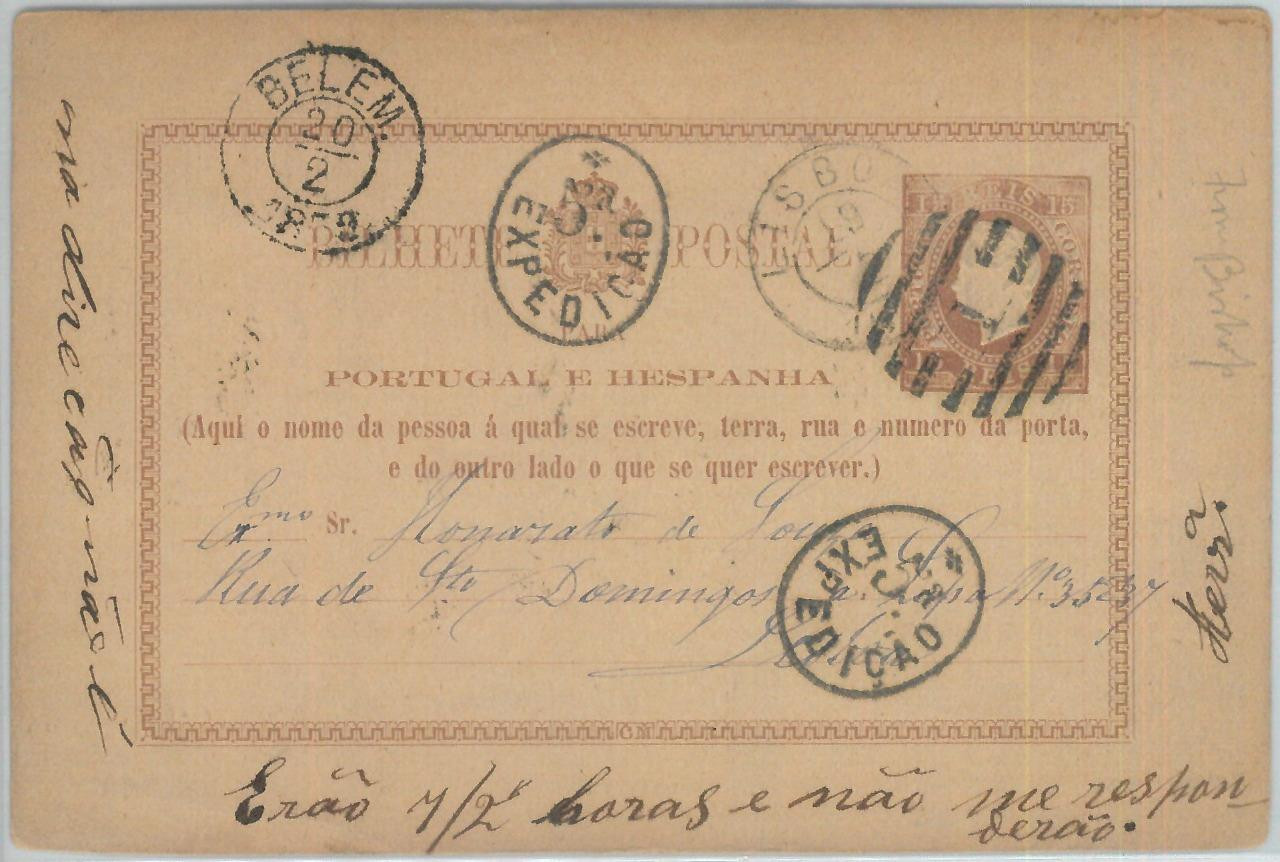 BELEM.
20
2
* 5ª
EXPEDIÇÃO
LISBO
19
15 REIS 15
BILHETE POSTAL
PARA
PORTUGAL E HESPANHA
(Aqui o nome da pessoa á qual se escreve, terra, rua e numero da porta,
e do outro lado o que se quer escrever.)
Exmo Sr. Honorato de Souza
Rua de Sto Domingos a Lapa Nº 35-37
* 5ª
EXPEDIÇÃO
CM
na direcção não é
Erão 7/2 horas e não me respon-
derão.